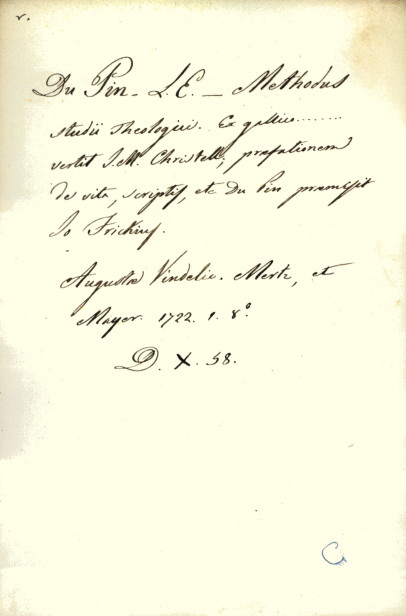 v.
Du Pin - L. E. — Methodus
studii Theologici. Ex gallico........
vertit J. M. Christell, præfationem
de vita, scriptis, etc Du Pin præmisit
Jo Frickius.
Augustæ Vindelic. Mertz, et
Mayer. 1722. 1. 8°.
D. X. 58.
C